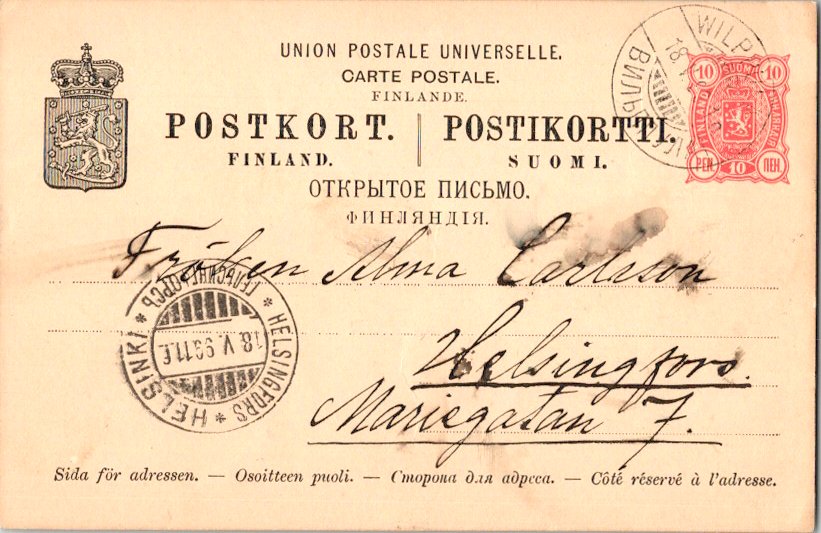 UNION POSTALE UNIVERSELLE.
CARTE POSTALE.
FINLANDE.
POSTKORT. | POSTIKORTTI.
FINLAND. SUOMI.
ОТКРЫТОЕ ПИСЬМО.
ФИНЛЯНДІЯ.
10 SUOMI 10
FINLAND
PEN. 10 ПЕН.
18
Fröken Alma Carlsson
Helsingfors.
Mariegatan 7.
HELSINKI * HELSINGFORS * ГЕЛЬСИНГФОРСЪ
18. V. 93. 11. F.
Sida för adressen. — Osoitteen puoli. — Сторона для адреса. — Côté réservé à l'adresse.